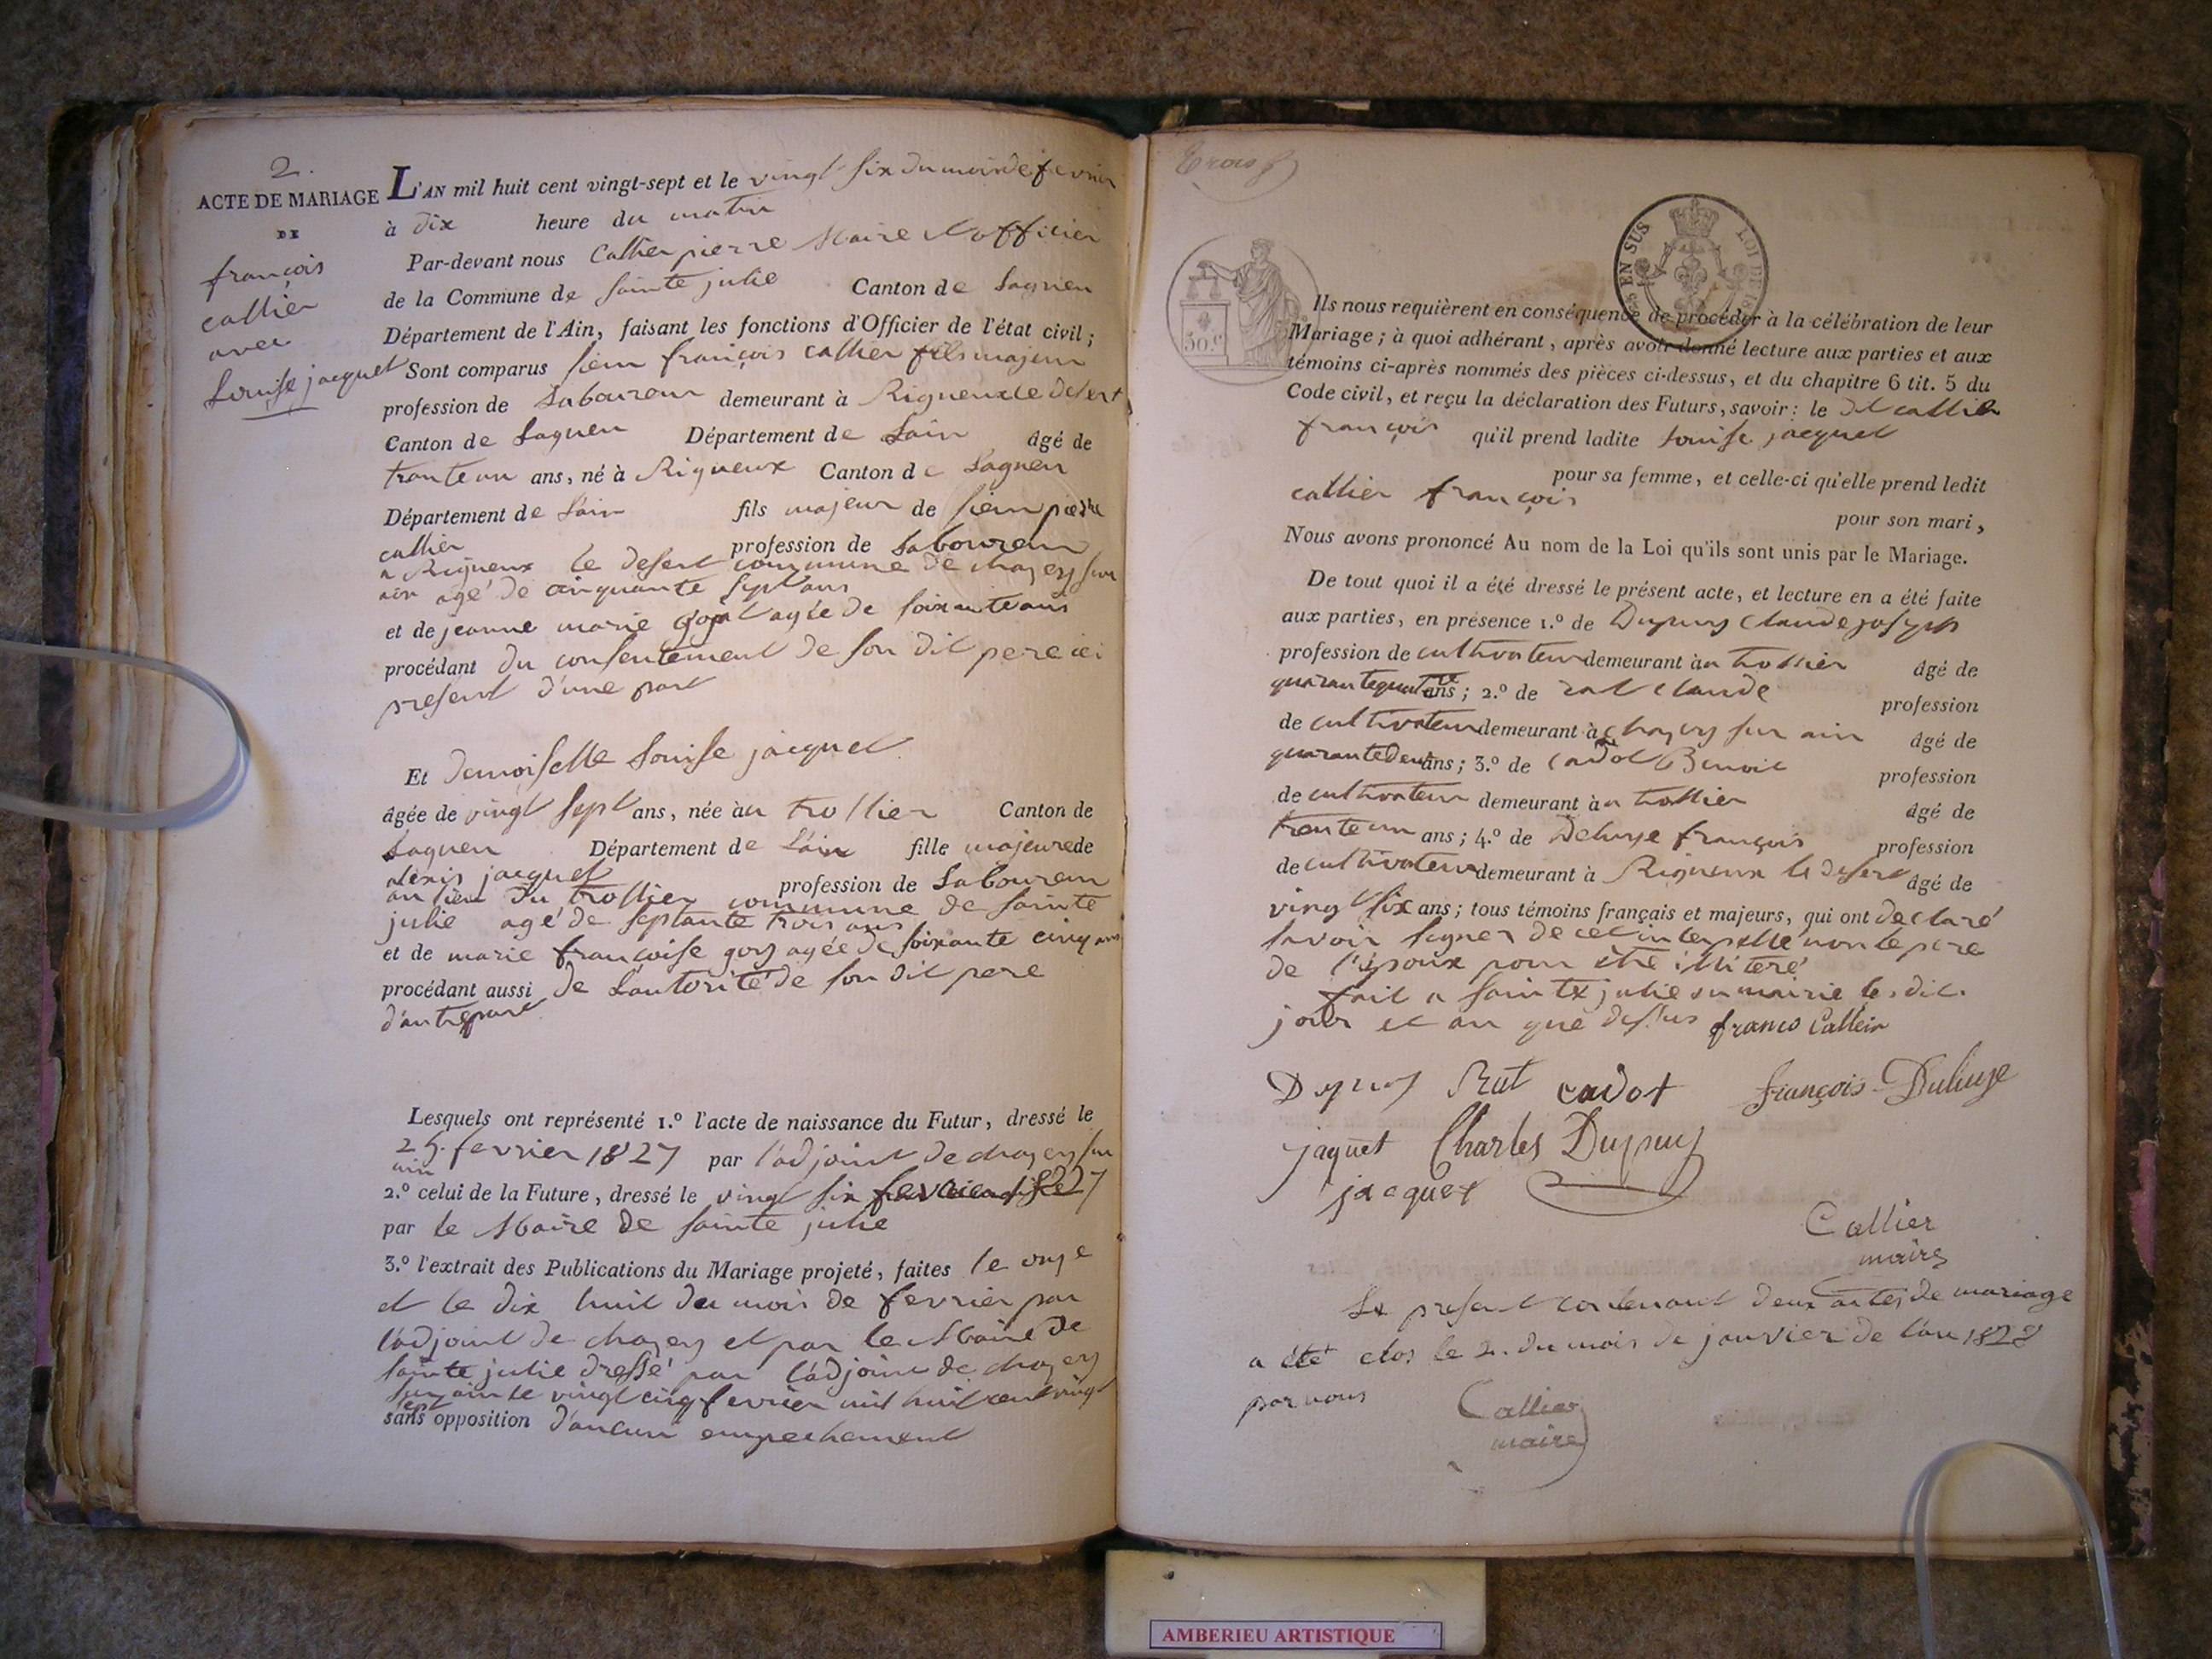 2.
ACTE DE MARIAGE
DE
françois
callier
avec
Louise jacquet
L'AN mil huit cent vingt-sept et le vingt six du mois de fevrier
à dix heure du matin
Par-devant nous Callier pierre Maire et officier
de la Commune de Sainte julie Canton de Lagnieu
Département de l'Ain, faisant les fonctions d'Officier de l'état civil;
Sont comparus sieur françois callier fils majeur
profession de Laboureur demeurant à Rigneux le desert
Canton de Lagneu Département de Lain âgé de
trante un ans, né à Rigneux Canton de Lagneu
Département de Lain fils majeur de sieur pierre
callier profession de Laboureur
a Rigneux le desert commune de chazey sur
ain agé de cinquante sept ans
et de jeanne marie agée de soixante ans
procédant du consentement de son dit pere ici
present d'une part
Et demoiselle Louise jacquet
âgée de vingt sept ans, née au trollier Canton de
Lagneu Département de Lain fille majeure de
alexis jacquet profession de Laboureur
au lieu du trollier commune de Sainte
julie agé de septante trois ans
et de marie françoise agée de soixante cinq ans
procédant aussi de Lautorité de son dit pere
d'autre part
Lesquels ont représenté 1.º l'acte de naissance du Futur, dressé le
25. fevrier 1827 par l'adjoint de chazey sur
ain
2.º celui de la Future, dressé le vingt six fevrier 1827
par le Maire de Sainte julie
3.º l'extrait des Publications du Mariage projeté, faites le onze
et le dix huit du mois de fevrier par
l'adjoint de chazey et par le Maire de
sainte julie dressé par l'adjoint de chazey
sur ain le vingt cinq fevrier mil huit cent vingt
sept
sans opposition d'aucun empechement
EN SUS LOI DE
30.c
Ils nous requièrent en conséquence de procéder à la célébration de leur
Mariage; à quoi adhérant, après avoir donné lecture aux parties et aux
témoins ci-après nommés des pièces ci-dessus, et du chapitre 6 tit. 5 du
Code civil, et reçu la déclaration des Futurs, savoir: le dit callier
françois qu'il prend ladite Louise jacquet
pour sa femme, et celle-ci qu'elle prend ledit
callier françois
pour son mari,
Nous avons prononcé Au nom de la Loi qu'ils sont unis par le Mariage.
De tout quoi il a été dressé le présent acte, et lecture en a été faite
aux parties, en présence 1.º de Dupuy Claude joseph
profession de cultivateur demeurant à au trollier âgé de
quarante quatre ans; 2.º de rat claude profession
de cultivateur demeurant à chazey sur ain âgé de
quarante deux ans; 3.º de cadot Benoit profession
de cultivateur demeurant à au trollier âgé de
trente un ans; 4.º de françois profession
de cultivateur demeurant à Rigneux le desert âgé de
vingt six ans; tous témoins français et majeurs, qui ont declaré
savoir signer de cet interpellé non le pere
de l'époux pour être illiteré
fait a sainte julie en mairie les dit
jour et an que dessus franco Callier
Dupuy Rat cadot françois
jaquet Charles Dupuy
jacquet
Callier
maire
Le present contenant deux actes de mariage
a été clos le 2. du mois de janvier de l'an 1828
par nous
Callier
maire
AMBERIEU ARTISTIQUE